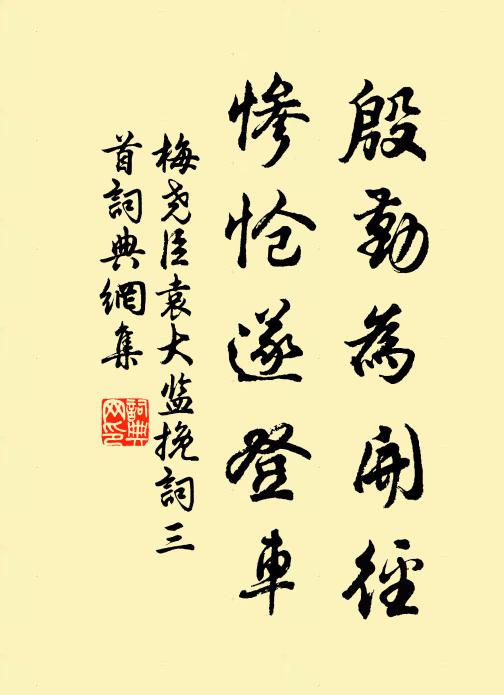 殷勤為開徑
慘愴遂登車
梅尧臣袁大监挽詞三
首詞典網集
詞典
网印